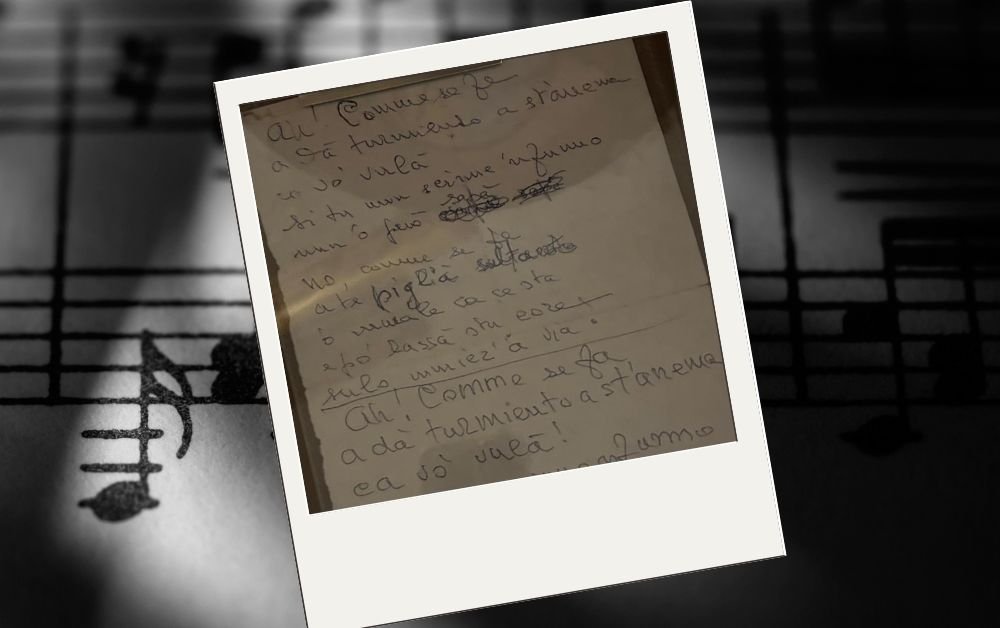 Ah! Comme se fa
a dà turmiento a st'anema
ca vò vulà
si tu nun scinne 'nfunno
nun 'o può sapè
no, comme se fa
a te piglià soltanto
'o mmale ca ce sta
e pò lassà stu core
sulo mmiez'a via.
Ah! Comme se fa
a dà turmiento a st'anema
ca vò vulà!
nfunno